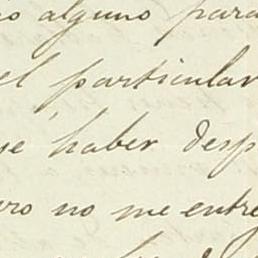 io alguno para
el particular
se haber desp
ro no me entre